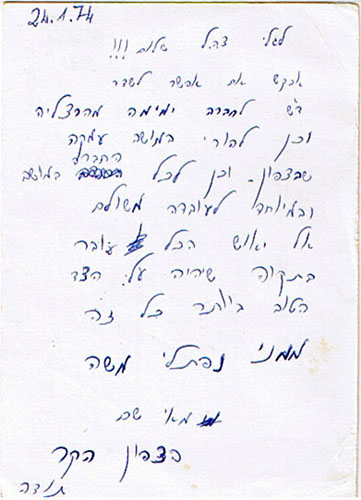 24.1.74
לגלי צה"ל שלום!!!
אבקש את אפשר לשדר
ד"ש לחברה ימימה מהרצליה
וכן להורי במושב עמקה
שבצפון. וכן לכל החברה במושב
ובמיוחד לעובדה משולם
אל יאוש הכל עובר
בתקוה שיהיה על הצד
הטוב ביותר כל זה
ממני נפתלי משה
מאי שם
בצפון הקר
תודה